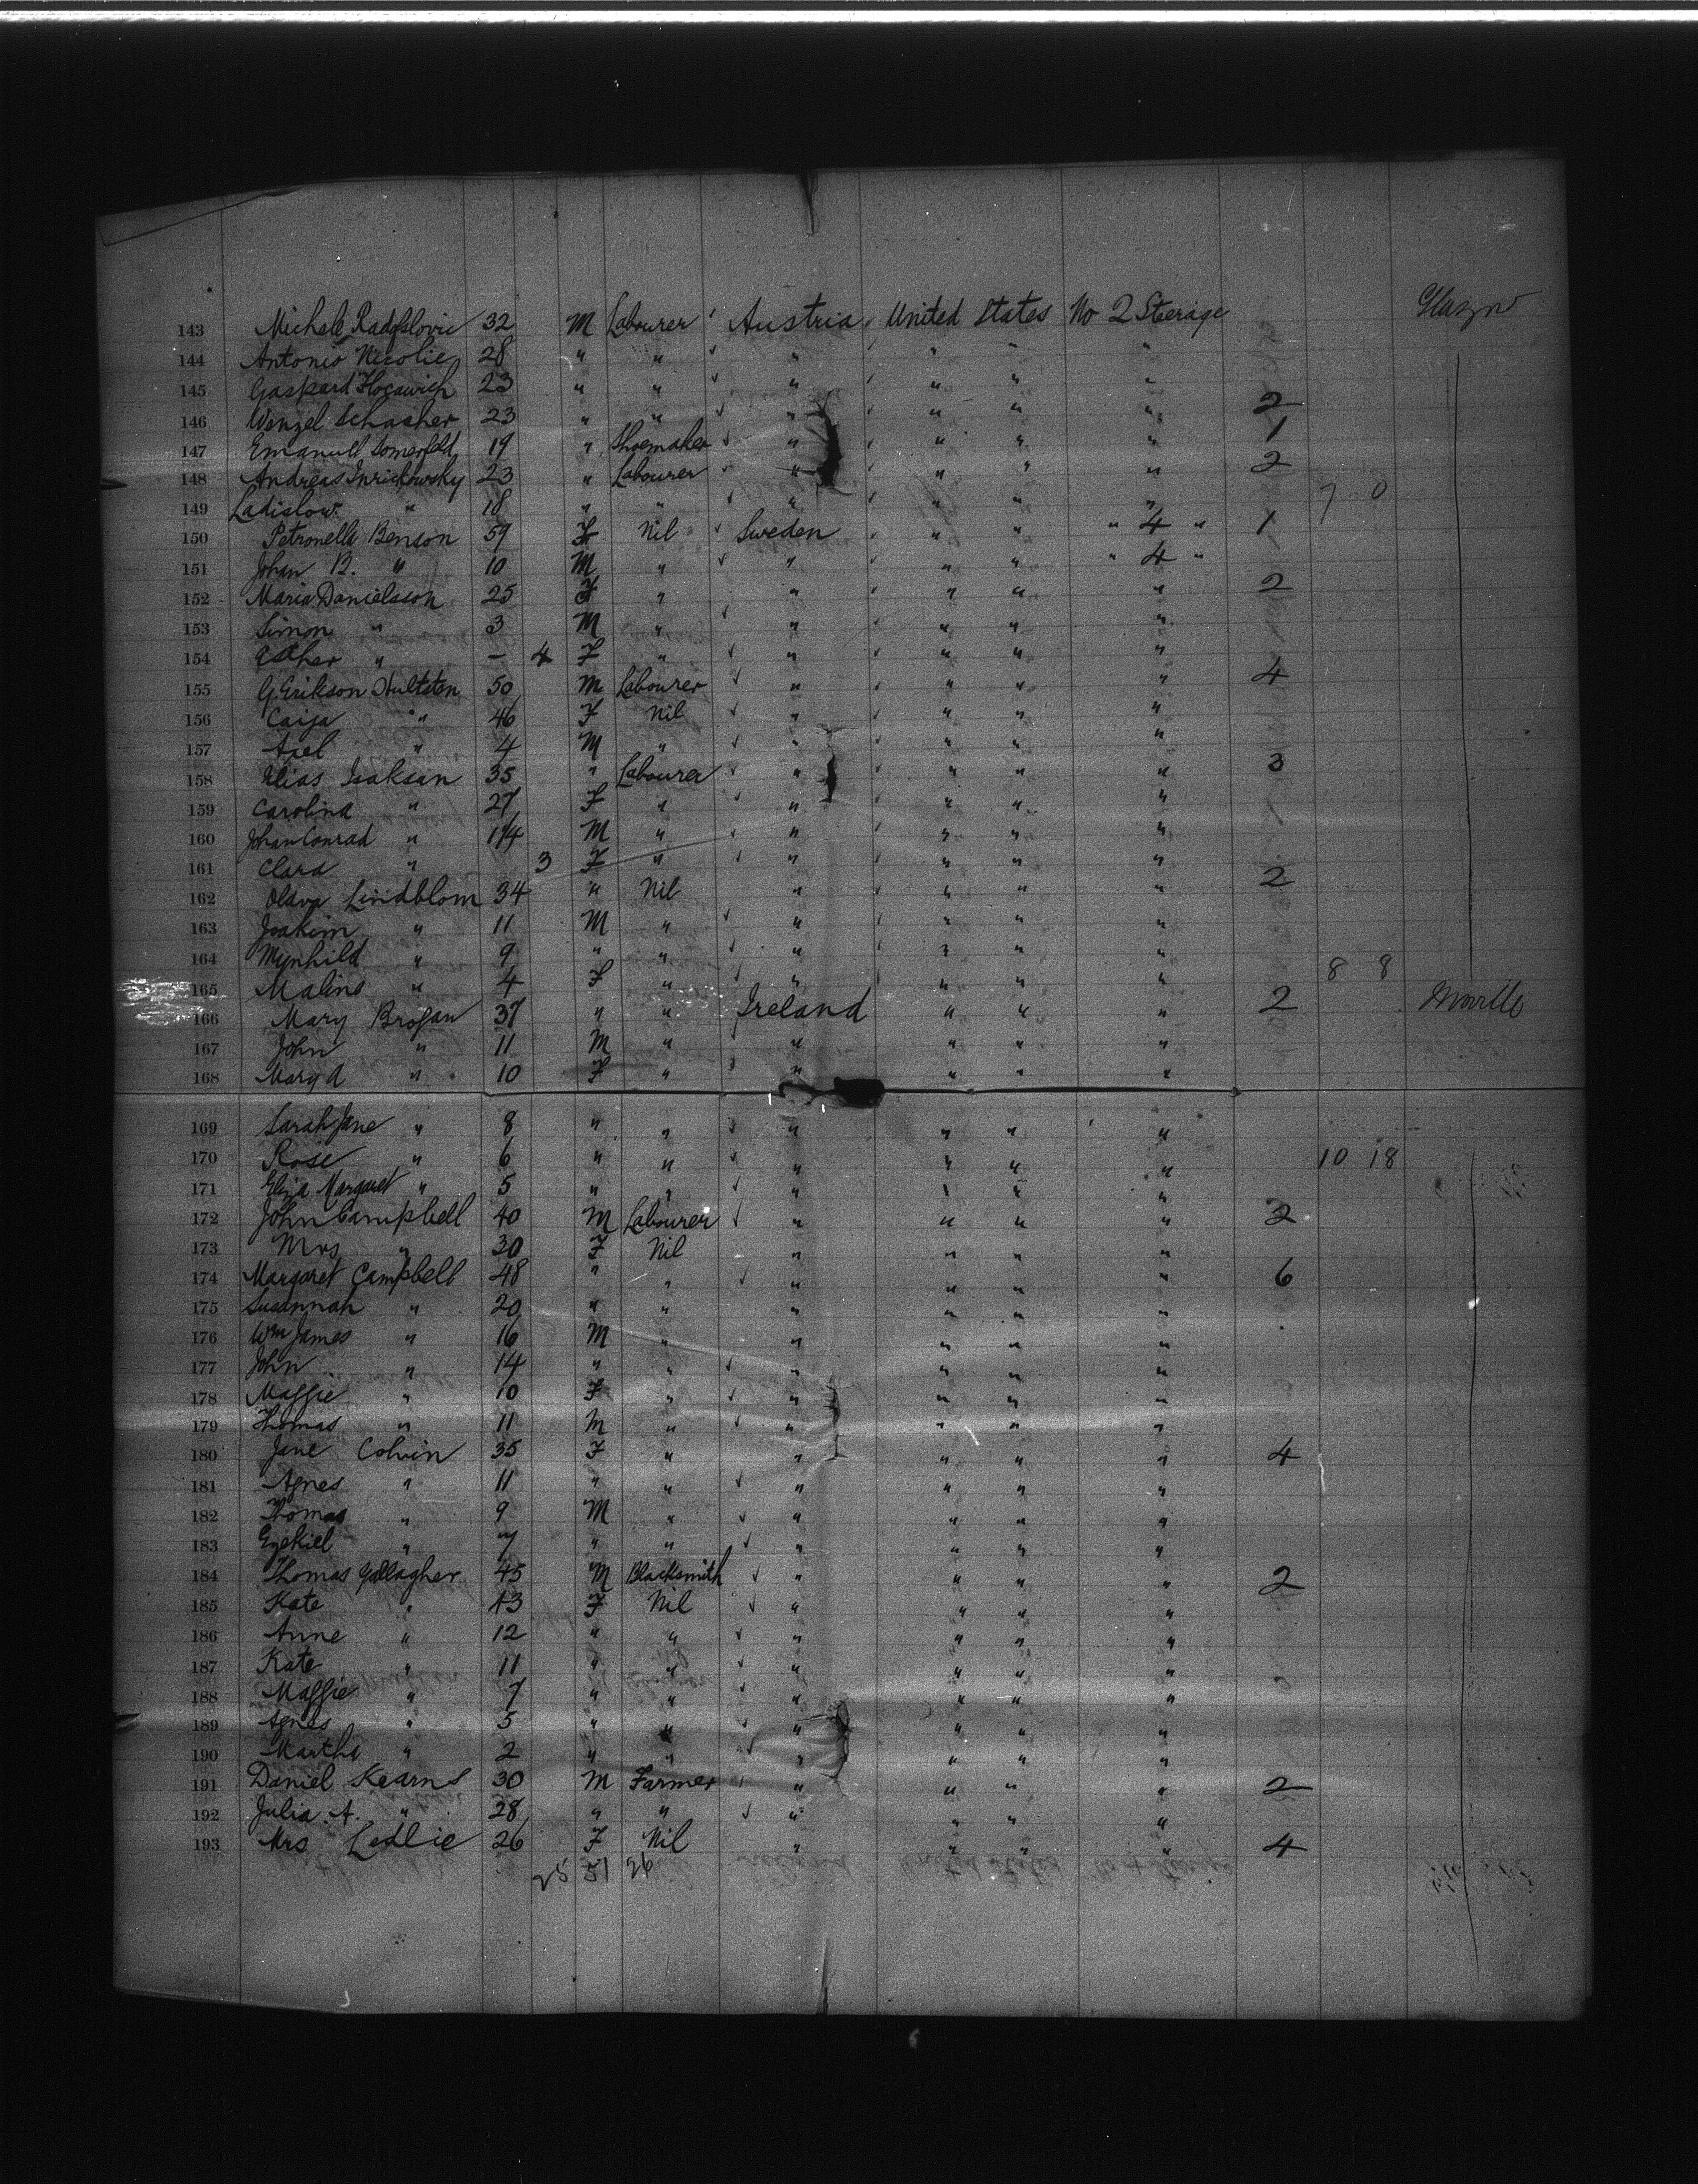 143 Michele Radoslovic 32 M Labourer Austria United States No 2 Steerage Glasgow
144 Antonio Nicolic 28 " " " " " "
145 Gaspard 23 " " " " " "
146 Wenzel Schasher 23 " " " " " " 2
147 Emanuel Somerfeld 19 " Shoemaker " " " " 1
148 Andreas 23 " Labourer " " " " 2
149 Ladislow " 18 " " " " " " 7 0
150 Petronella Benson 59 F Nil Sweden " " " 4 " 1
151 Johan B. " 10 M " " " " " 4 "
152 Maria Danielsson 25 F " " " " " 2
153 Simon " 3 M " " " " "
154 Esther " - 4 F " " " " "
155 G. Erikson Hultsten 50 M Labourer " " " " 4
156 Caija " 46 F Nil " " " "
157 Axel " 4 M " " " " "
158 Elias Isaksan 35 " Labourer " " " " 3
159 Carolina " 27 F " " " " "
160 Johan Conrad " 1 3/4 M " " " " "
161 Clara " 3 F " " " " "
162 Olava Lindblom 34 " Nil " " " " 2
163 Joakim " 11 M " " " " "
164 Mynhild " 9 " " " " " "
165 Malins " 4 F " " " " " 8 8
166 Mary Brogan 37 " " Ireland " " " 2 Moville
167 John " 11 M " " " " "
168 Mary A " 10 F " " " " "
169 Sarah Jane " 8 " " " " " "
170 Rose " 6 " " " " " " 10 18
171 Eliza Margaret " 5 " " " " " "
172 John Campbell 40 M Labourer " " " " 2
173 Mrs " 30 F Nil " " " "
174 Margaret Campbell 48 " " " " " " 6
175 Susannah " 20 " " " " " "
176 Wm James " 16 M " " " " "
177 John " 14 " " " " " "
178 Maggie " 10 F " " " " "
179 Thomas " 11 M " " " " "
180 Jane Colvin 35 F " " " " " 4
181 Agnes " 11 " " " " " "
182 Thomas " 9 M " " " " "
183 Ezekiel " 7 " " " " " "
184 Thomas Gallagher 45 M Blacksmith " " " " 2
185 Kate " 43 F Nil " " " "
186 Anne " 12 " " " " " "
187 Kate " 11 " " " " " "
188 Maggie " 7 " " " " " "
189 Agnes " 5 " " " " " "
190 Martha " 2 " " " " " "
191 Daniel Kearns 30 M Farmer " " " " 2
192 Julia A. " 28 " " " " " "
193 Mrs Ledlie 26 F Nil " " " " 4
25 51 26